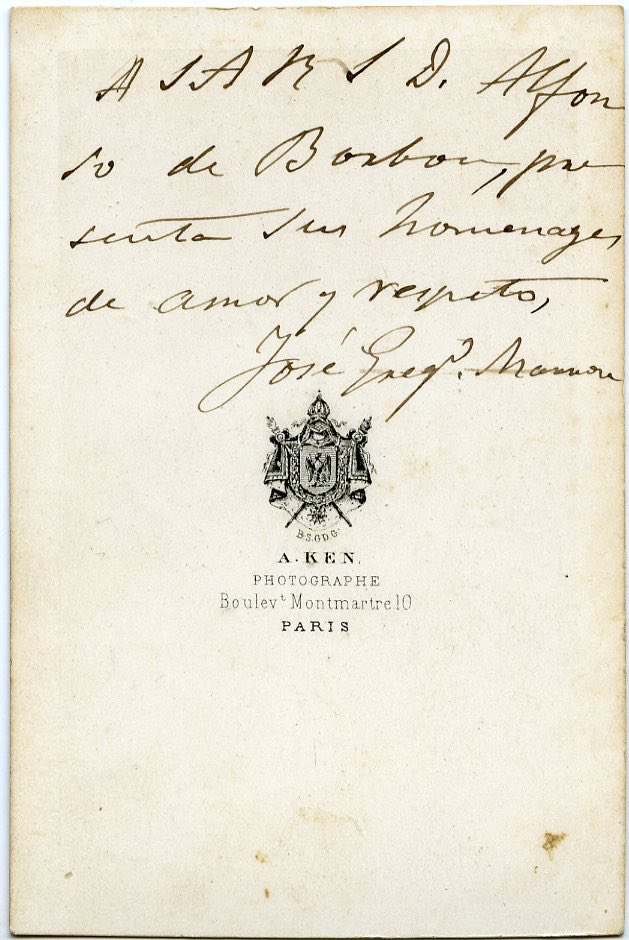 A S A R S D. Alfon
so de Borbon, pre
senta sus homenages
de amor y respeto,
José Greg.
B.S.G.D.G.
A. KEN.
PHOTOGRAPHE
Boulev.t Montmartre.10
PARIS